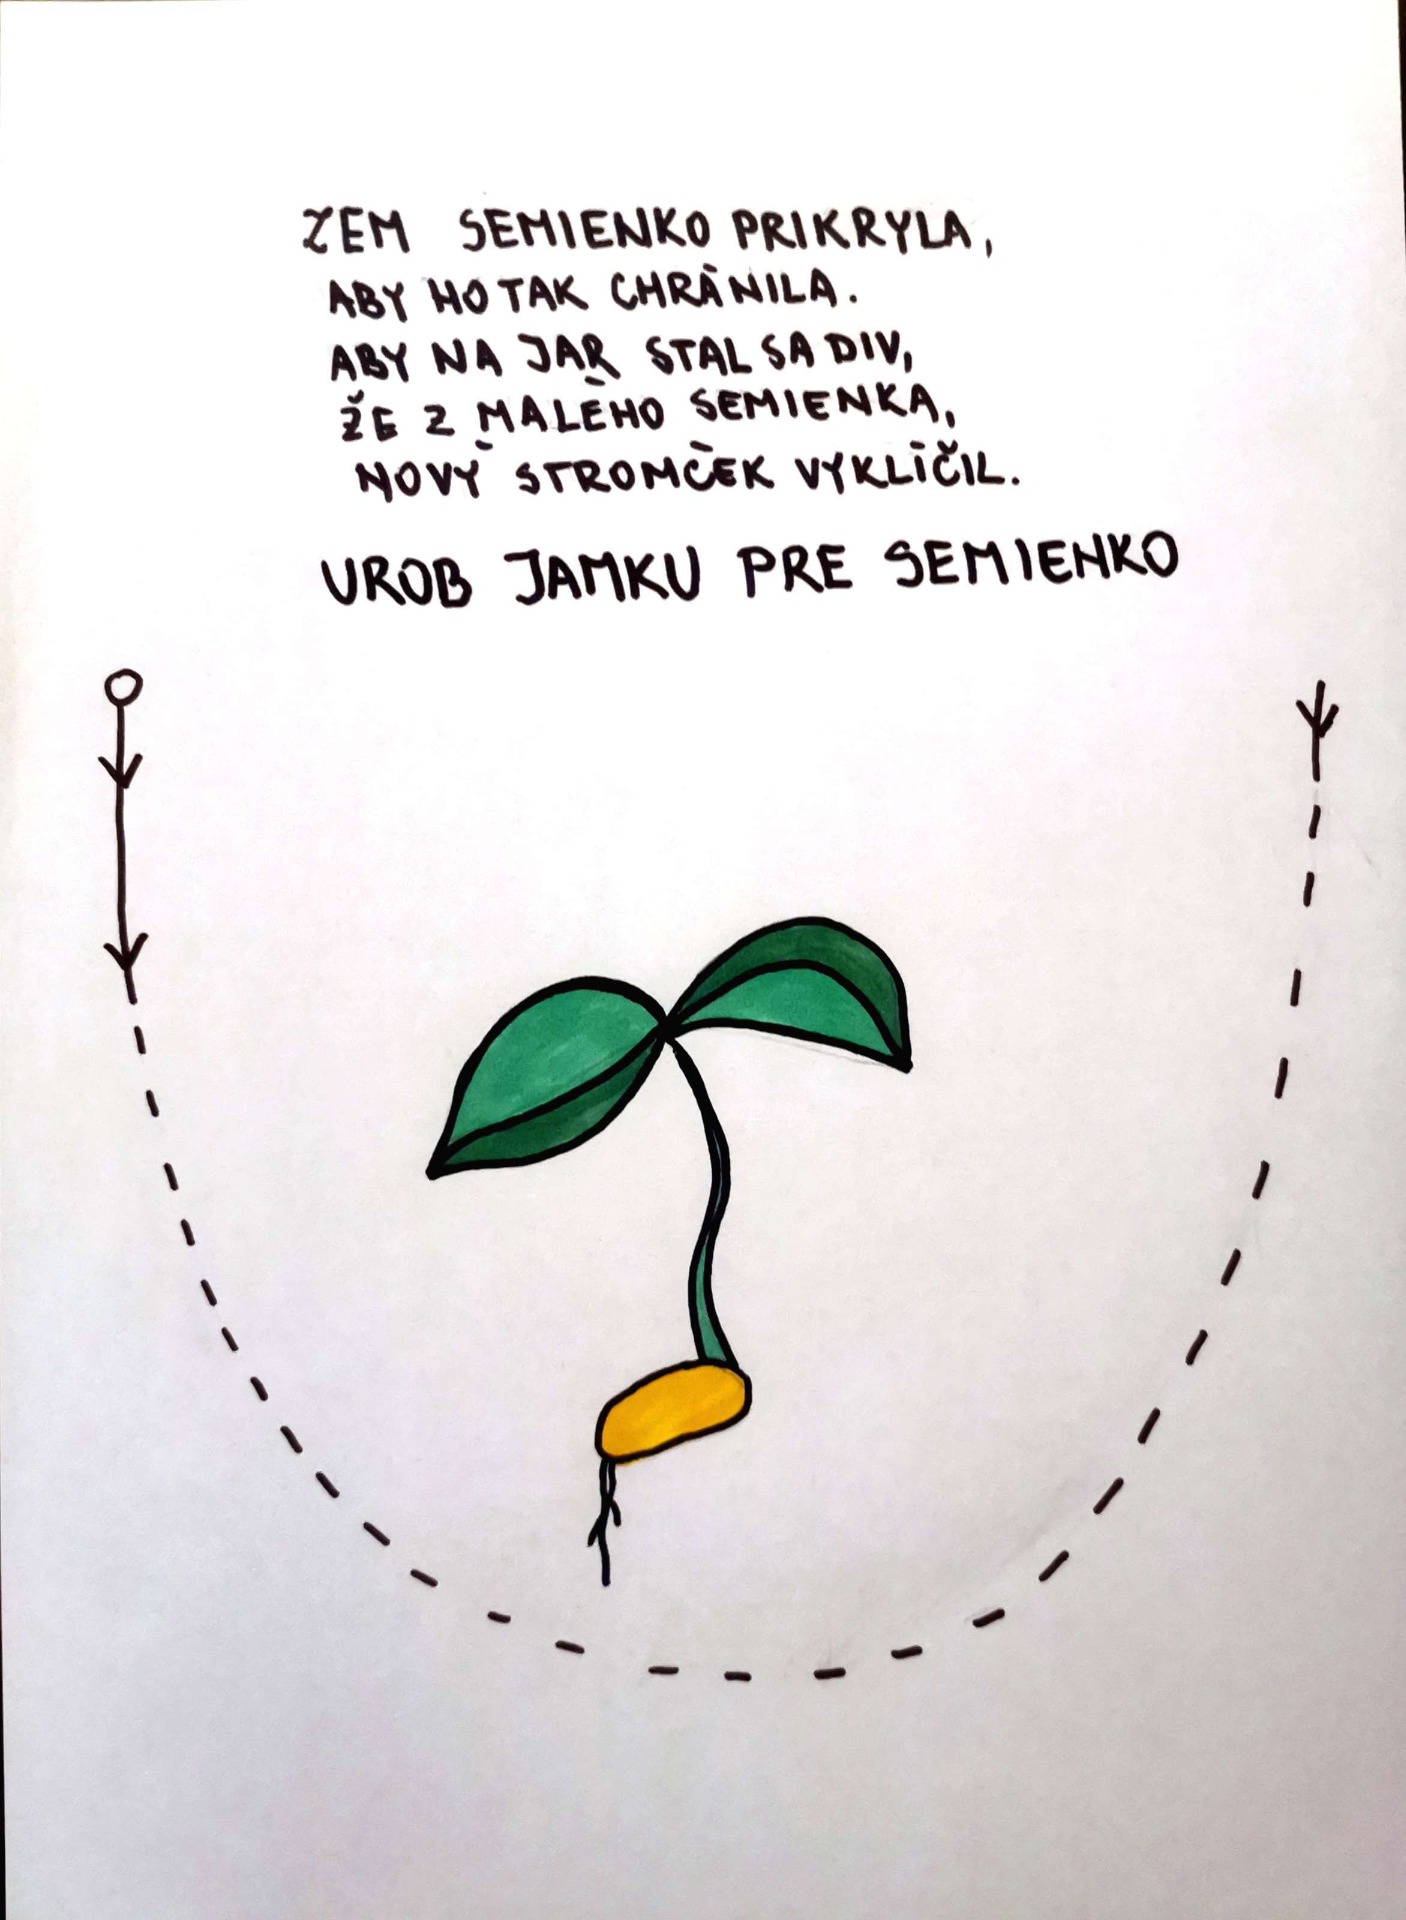 ZEM SEMIENKO PRIKRYLA,
ABY HO TAK CHRÁNILA.
ABY NA JAR STAL SA DIV,
ŽE Z MALÉHO SEMIENKA,
NOVÝ STROMČEK VYKLÍČIL.
UROB JAMKU PRE SEMIENKO